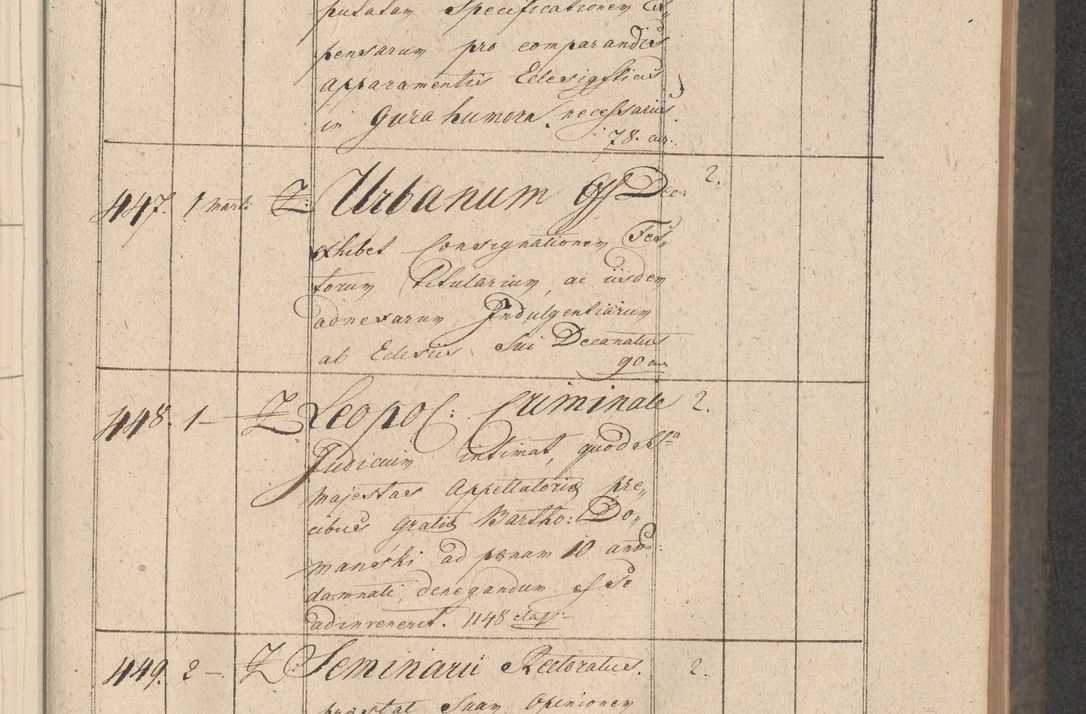 putatam Specificationem Ex„
pensarum pro comparandis
apparamentis Eclesiasticis
in Gura humora necessariis.
78. ar.
447. 1 Martii Z: Urbanum Off Dec: 2.
exhibet Consignationem Fes„
torum Titularium, ac iisdem
adnexarum Indulgentiarum
ab Eclesiis Sui Decanatus
90 ar
448. 1 — Z Leopol: Criminale 2.
Judicium intimat, quod S̃ta
Majestas Appellatoriis pre„
cibus Gratis Bartho: Do„
manski ad penam 10 anno:
damnati, denegandum esse
adinvenerit. 1148
449. 2 — Z: Seminarii Rectoratus. 2.
praestat Suam Opinionem